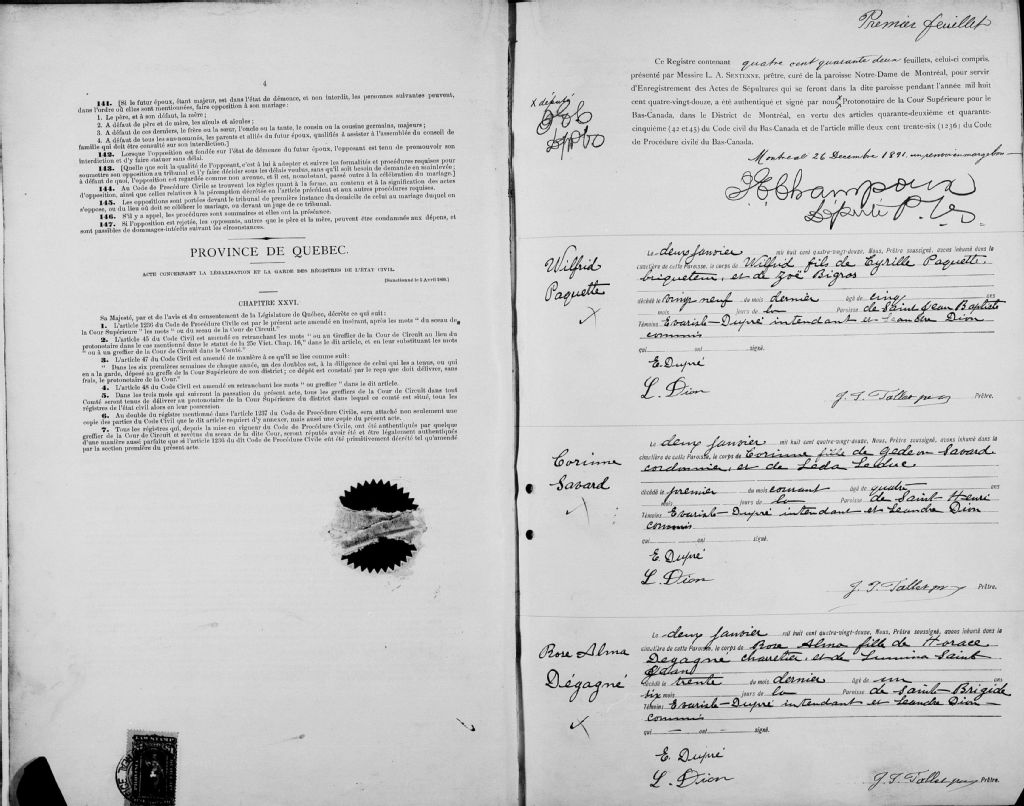 4
141. [Si le futur époux, étant majeur, est dans l'état de démence, et non interdit, les personnes suivantes peuvent,
dans l'ordre où elles sont mentionnées, faire opposition à son mariage :
1. Le père, et à son défaut, la mère ;
2. A défaut de père et de mère, les aïeuls et aïeules ;
3. A défaut de ces derniers, le frère ou la sœur, l'oncle ou la tante, le cousin ou la cousine germains, majeurs ;
4. A défaut de tous les sus-nommés, les parents et alliés du futur époux, qualifiés à assister à l'assemblée du conseil de
famille qui doit être consulté sur son interdiction.]
142. Lorsque l'opposition est fondée sur l'état de démence du futur époux, l'opposant est tenu de promouvoir son
interdiction et d'y faire statuer sans délai.
143. [Quelque soit la qualité de l'opposant, c'est à lui à adopter et suivre les formalités et procédures requises pour
soumettre son opposition au tribunal et l'y faire décider sous les délais voulus, sans qu'il soit besoin de demande en mainlevée ;
à défaut de quoi, l'opposition est regardée comme non avenue, et il est, nonobstant, passé outre à la célébration du mariage.]
144. Au Code de Procédure Civile se trouvent les règles quant à la forme, au contenu et à la signification des actes
d'opposition, ainsi que celles relatives à la péremption décrétée en l'article précédent et aux autres procédures requises.
145. Les oppositions sont portées devant le tribunal de première instance du domicile de celui au mariage duquel on
s'oppose, ou du lieu où doit se célébrer le mariage, ou devant un juge de ce tribunal.
146. S'il y a appel, les procédures sont sommaires et elles ont la préséance.
147. Si l'opposition est rejetée, les opposants, autres que le père et la mère, peuvent être condamnés aux dépens, et
sont passibles de dommages-intérêts suivant les circonstances.
PROVINCE DE QUEBEC.
ACTE CONCERNANT LA LÉGALISATION ET LA GARDE DES REGISTRES DE L'ÉTAT CIVIL.
[Sanctionné le 5 Avril 1869.]
CHAPITRE XXVI.
Sa Majesté, par et de l'avis et du consentement de la Législature de Québec, décrète ce qui suit :
1. L'article 1236 du Code de Procédure Civile est par le présent acte amendé en insérant, après les mots " du sceau de
la Cour Supérieure " les mots " ou du sceau de la Cour de Circuit."
2. L'article 45 du Code Civil est amendé en retranchant les mots " ou au Greffier de la Cour de Circuit au lieu du
protonotaire dans le cas mentionné dans le statut de la 25e Vict. Chap. 16," dans le dit article, et en leur substituant les mots
" ou à un greffier de la Cour de Circuit dans le Comté."
3. L'article 47 du Code Civil est amendé de manière à ce qu'il se lise comme suit :
" Dans les six premières semaines de chaque année, un des doubles est, à la diligence de celui qui les a tenus, ou qui
en a la garde, déposé au greffe de la Cour Supérieure de son district ; ce dépôt est constaté par le reçu que doit délivrer, sans
frais, le protonotaire de la Cour."
4. L'article 48 du Code Civil est amendé en retranchant les mots " ou greffier " dans le dit article.
5. Dans les trois mois qui suivront la passation du présent acte, tous les greffiers de la Cour de Circuit dans tout
Comté seront tenus de délivrer au protonotaire de la Cour Supérieure du district dans lequel ce comté est situé, tous les
régistres de l'état civil alors en leur possession
6. Au double du régistre mentionné dans l'article 1237 du Code de Procédure Civile, sera attaché non seulement une
copie des parties du Code Civil que le dit article requiert d'y annexer, mais aussi une copie du présent acte.
7. Tous les régistres qui, depuis la mise en vigueur du Code de Procédure Civile, ont été authentiqués par quelque
greffier de la Cour de Circuit et revêtus du sceau de la dite Cour, seront réputés avoir été et être légalement authentiqués
d'une manière aussi parfaite que si l'article 1236 du dit Code de Procédure Civile eut été primitivement décrété tel qu'amendé
par la section première du présent acte.
LAW STAMP
Premier feuillet
Ce Registre contenant quatre cent quarante deux feuillets, celui-ci compris,
présenté par Messire L. A. SENTENNE, prêtre, curé de la paroisse Notre-Dame de Montréal, pour servir
d'Enregistrement des Actes de Sépultures qui se feront dans la dite paroisse pendant l'année mil huit
cent quatre-vingt-douze, a été authentiqué et signé par nous Protonotaire de la Cour Supérieure pour le
Bas-Canada, dans le District de Montréal, en vertu des articles quarante-deuxième et quarante-
cinquième (42 et 45) du Code civil du Bas-Canada et de l'article mille deux cent trente-six (1236) du Code
de Procédure civile du Bas-Canada.
X député
Montreal 26 Decembre 1891. un renvoi en marge bon
Champoux
Député P.
Wilfrid
Paquette
Le deux janvier mil huit cent quatre-vingt-douze, Nous, Prêtre soussigné, avons inhumé dans la
cimetière de cette Paroisse, le corps de Wilfrid fils de Cyrille Paquette,
briqueteur, et de Zoé Bigras
décédé le vingt neuf du mois dernier âgé de cinq ans
mois jours de la Paroisse de Saint Jean Baptiste
Témoins Evariste Dupré intendant et Leandre Dion
commis
qui ont signé.
E. Dupré
L. Dion
J. T. Tallet ptre Prêtre.
Corinne
Savard
Le deux janvier mil huit cent quatre-vingt-douze, Nous, Prêtre soussigné, avons inhumé dans la
cimetière de cette Paroisse, le corps de Corinne fille de Gédéon Savard
cordonnier, et de Léda Leduc
décédé le premier du mois courant âgé de quatre ans
mois jours de la Paroisse de Saint Henri
Témoins Evariste Dupré intendant et Leandre Dion
commis
qui ont signé.
E. Dupré
L. Dion
J. T. Tallet ptre Prêtre.
Rose Alma
Dégagné
Le deux janvier mil huit cent quatre-vingt-douze, Nous, Prêtre soussigné, avons inhumé dans la
cimetière de cette Paroisse, le corps de Rose Alma fille de Horace
Dégagné charretier, et de Lumina Saint
décédé le trente du mois dernier âgé de un ans
six mois jours de la Paroisse de Sainte-Brigide
Témoins Evariste Dupré intendant et Leandre Dion
commis
qui ont signé.
E. Dupré
L. Dion
J. T. Tallet ptre Prêtre.